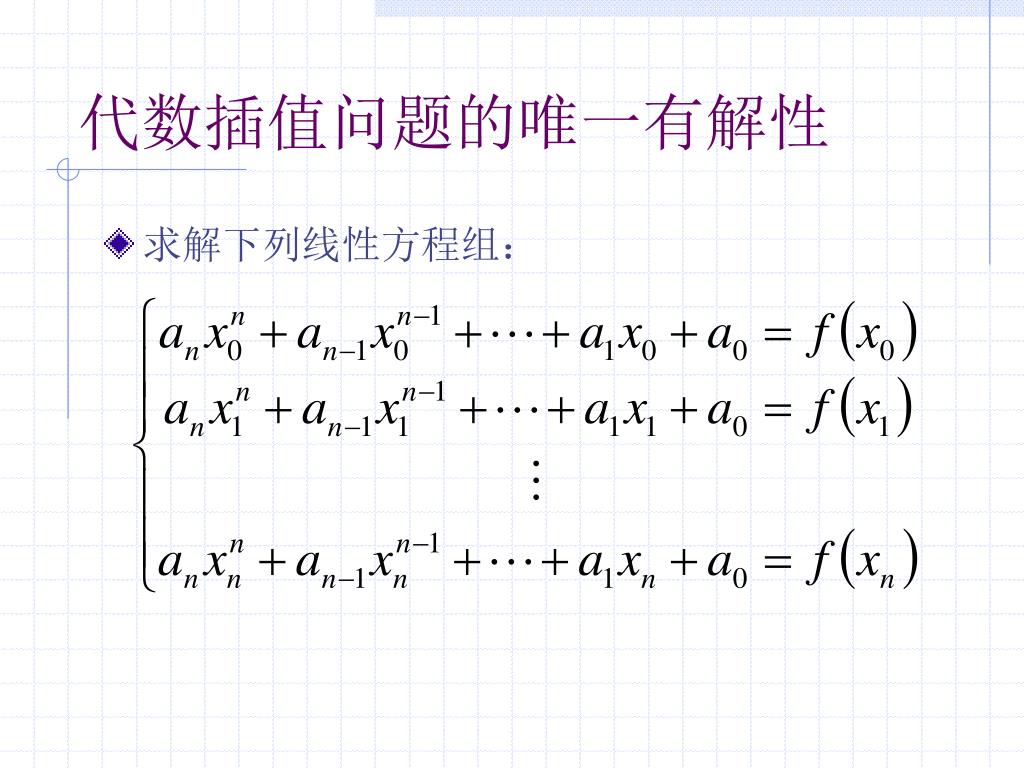 代数插值问题的唯一有解性
求解下列线性方程组：
aₙx₀ⁿ + aₙ₋₁x₀ⁿ⁻¹ + ⋯ + a₁x₀ + a₀ = f(x₀)
aₙx₁ⁿ + aₙ₋₁x₁ⁿ⁻¹ + ⋯ + a₁x₁ + a₀ = f(x₁)
⋮
aₙxₙⁿ + aₙ₋₁xₙⁿ⁻¹ + ⋯ + a₁xₙ + a₀ = f(xₙ)